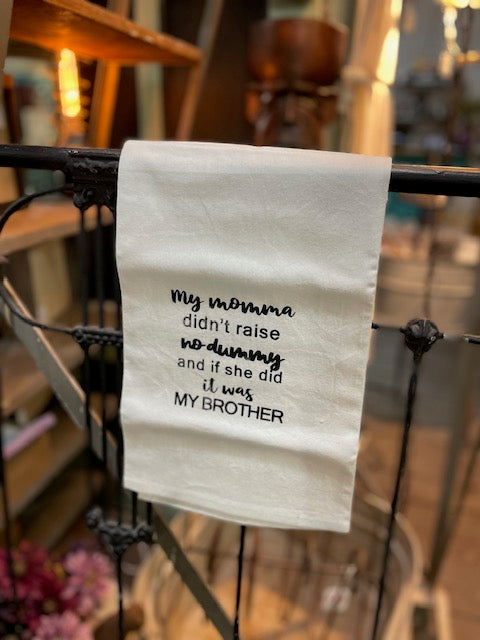 My momma
didn't raise
no dummy
and if she did
it was
MY BROTHER